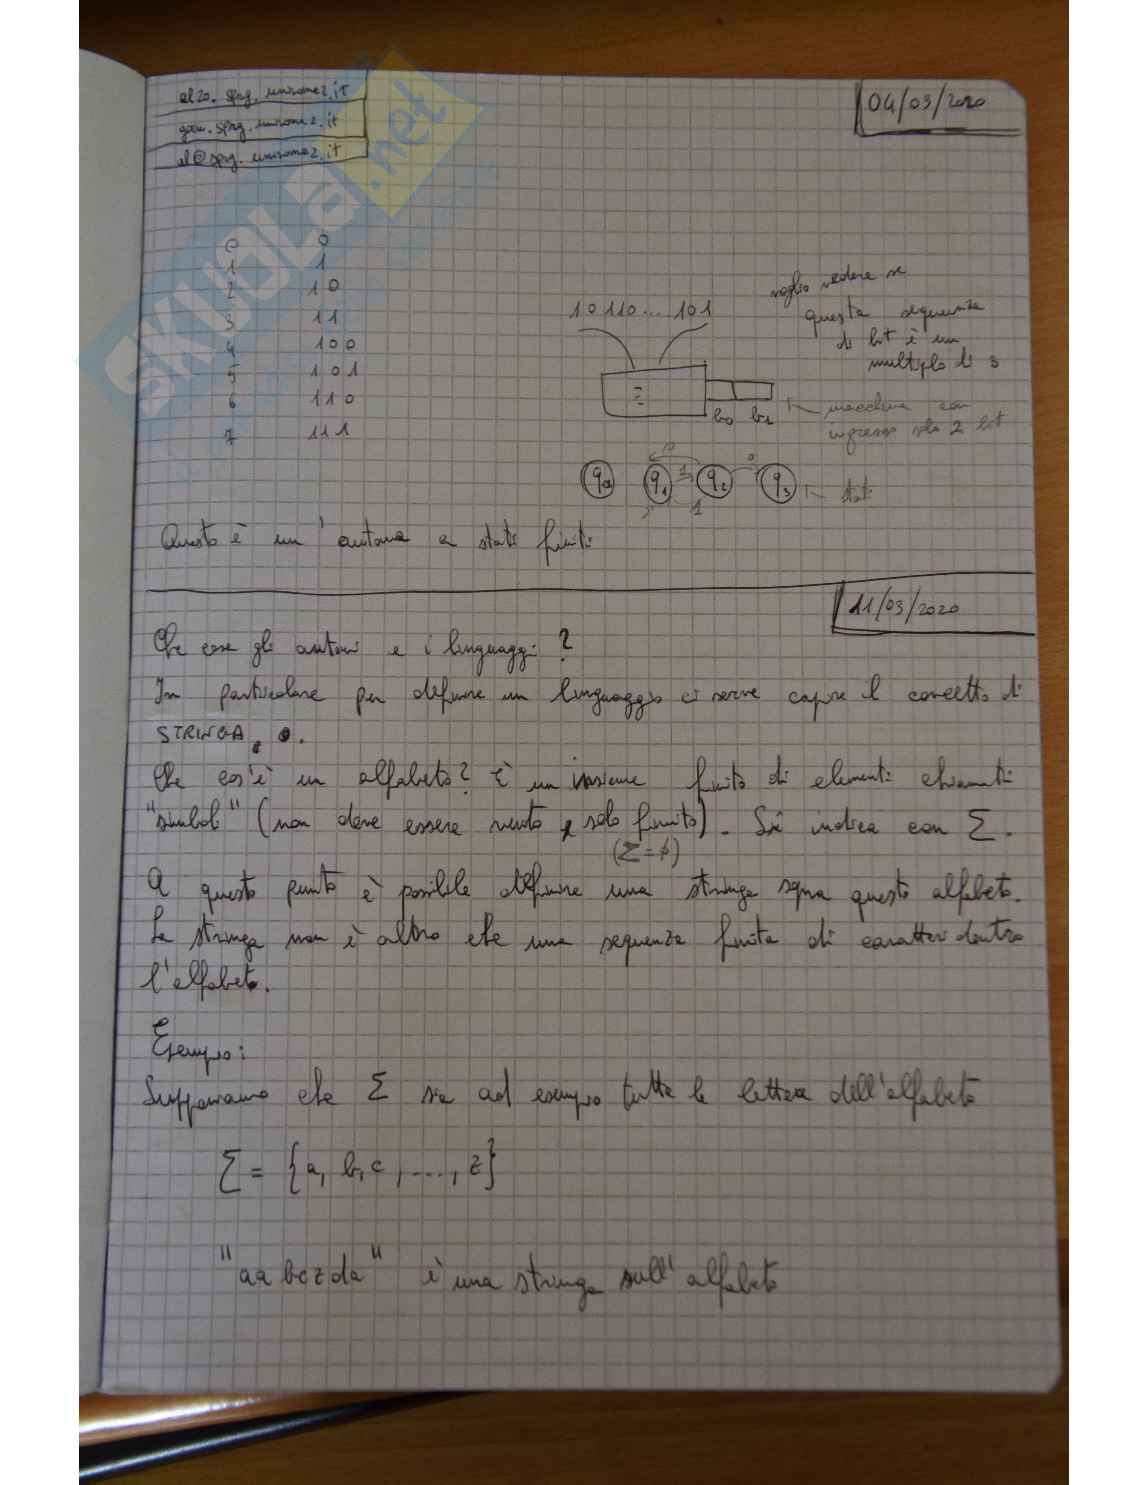 al20. spag. uniroma2.it
gou. spag. uniroma2.it
al@spag. uniroma2.it
04/03/2020
SKUOLA.net
0 0
1 1
2 10
3 11
4 100
5 101
6 110
7 111
voglio vedere se
questa sequenza
di bit è un
multiplo di 3
10110... 101
b0 b1
macchina con
ingresso solo 2 bit
0 1 0
q0 q1 q2 q3 stati
1
Questo è un' automa a stati finiti
11/03/2020
Che cosa gli automi e i linguaggi?
In particolare per definire un linguaggio ci serve capire il concetto di
STRINGA.
Che cos'è un alfabeto? È un insieme finito di elementi chiamati
"simboli" (non deve essere vuoto, solo finito). Si indica con Σ.
(Σ=ϕ)
A questo punto è possibile definire una stringa sopra questo alfabeto.
La stringa non è altro che una sequenza finita di caratteri dentro
l'alfabeto.
Esempio:
Supponiamo che Σ sia ad esempio tutte le lettere dell'alfabeto
Σ = {a, b, c, ..., z}
"aabczda" è una stringa sull'alfabeto